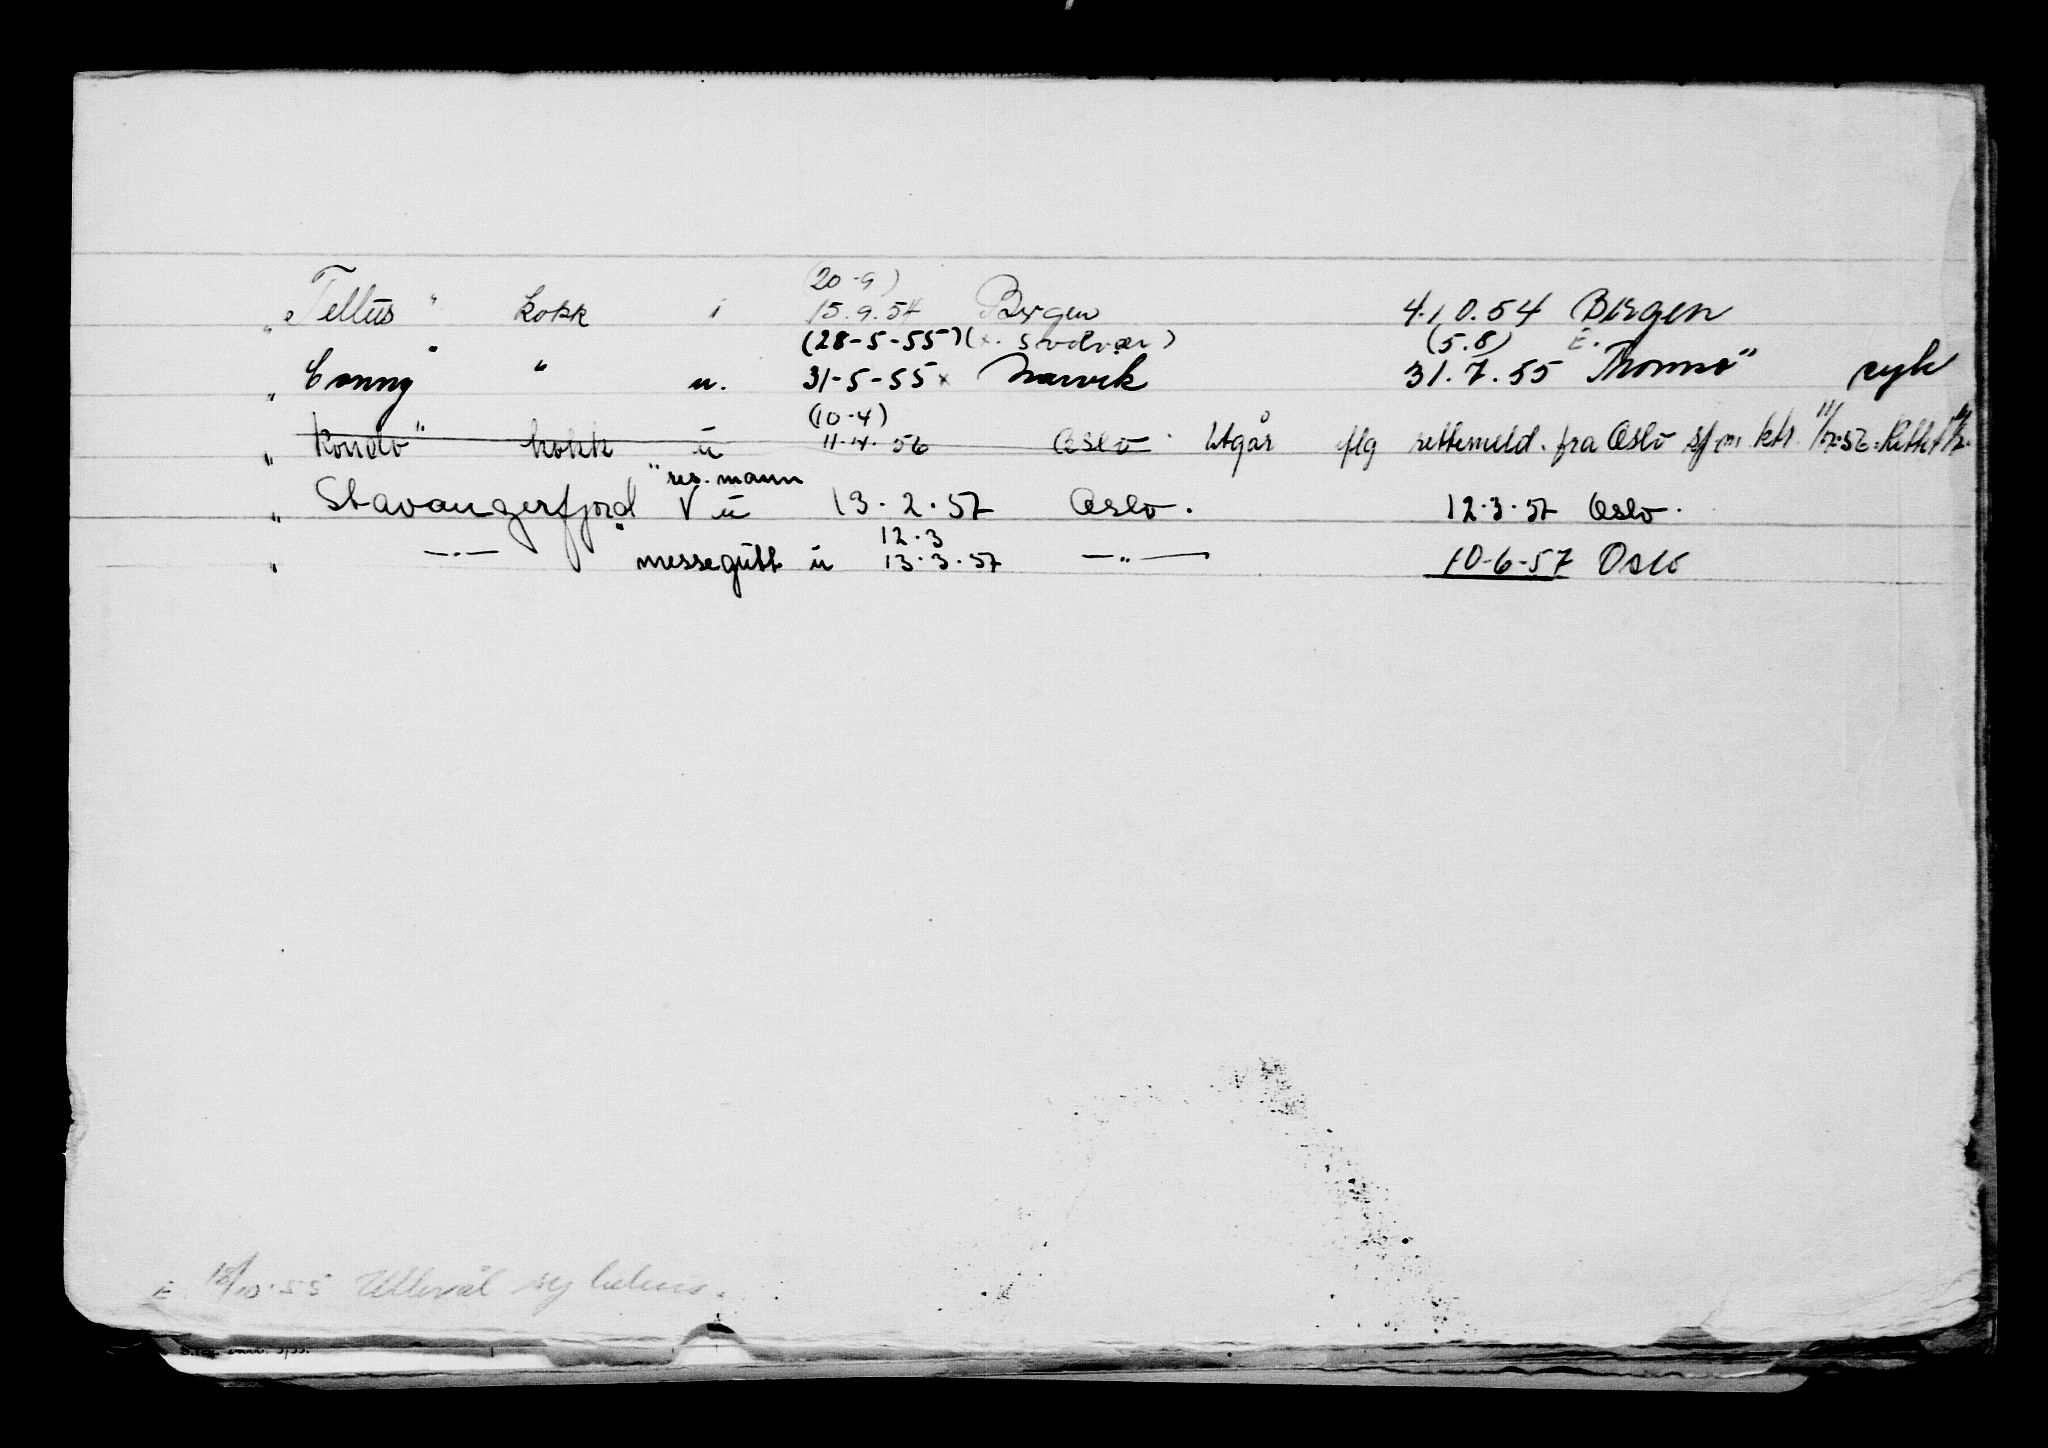 (20-9)
„Tellus" kokk i 15.9.54 Bergen 4.10.54 Bergen
(28-5-55) (x. Svolvær) (5.8) E.
„Conny" " u. 31-5-55 x Narvik 31.7.55 Tromsø" syk
(10-4)
„Kondo" kokk u 11.4.56 Oslo. Utgår iflg rettemeld. fra Oslo sjøm. ktr.
"res.mann
„Stavangerfjord" V u 13.2.57 Oslo. 12.3.57 Oslo.
12.3
„ —"— messegutt u 13.3.57 —"— 10-6-57 Oslo
E 18/10.55 Ullevål sykehus.